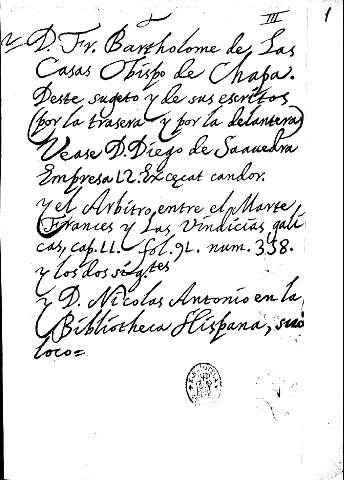 III 1
D. Fr. Bartholome de Las
Casas Obispo de Chapa.
Deste sugeto y de sus escritos
(por la trasera y por la delantera)
Vease D. Diego de Saauedra
Empresa 12. Excęcat candor.
y el Arbitro entre el Marte
Frances y Las Vindicias gali
cas, cap. 11. fol. 91. num. 358.
y los dos sigtes
y D. Nicolas Antonio en la
Bibliotheca Hispana, suo
loco=